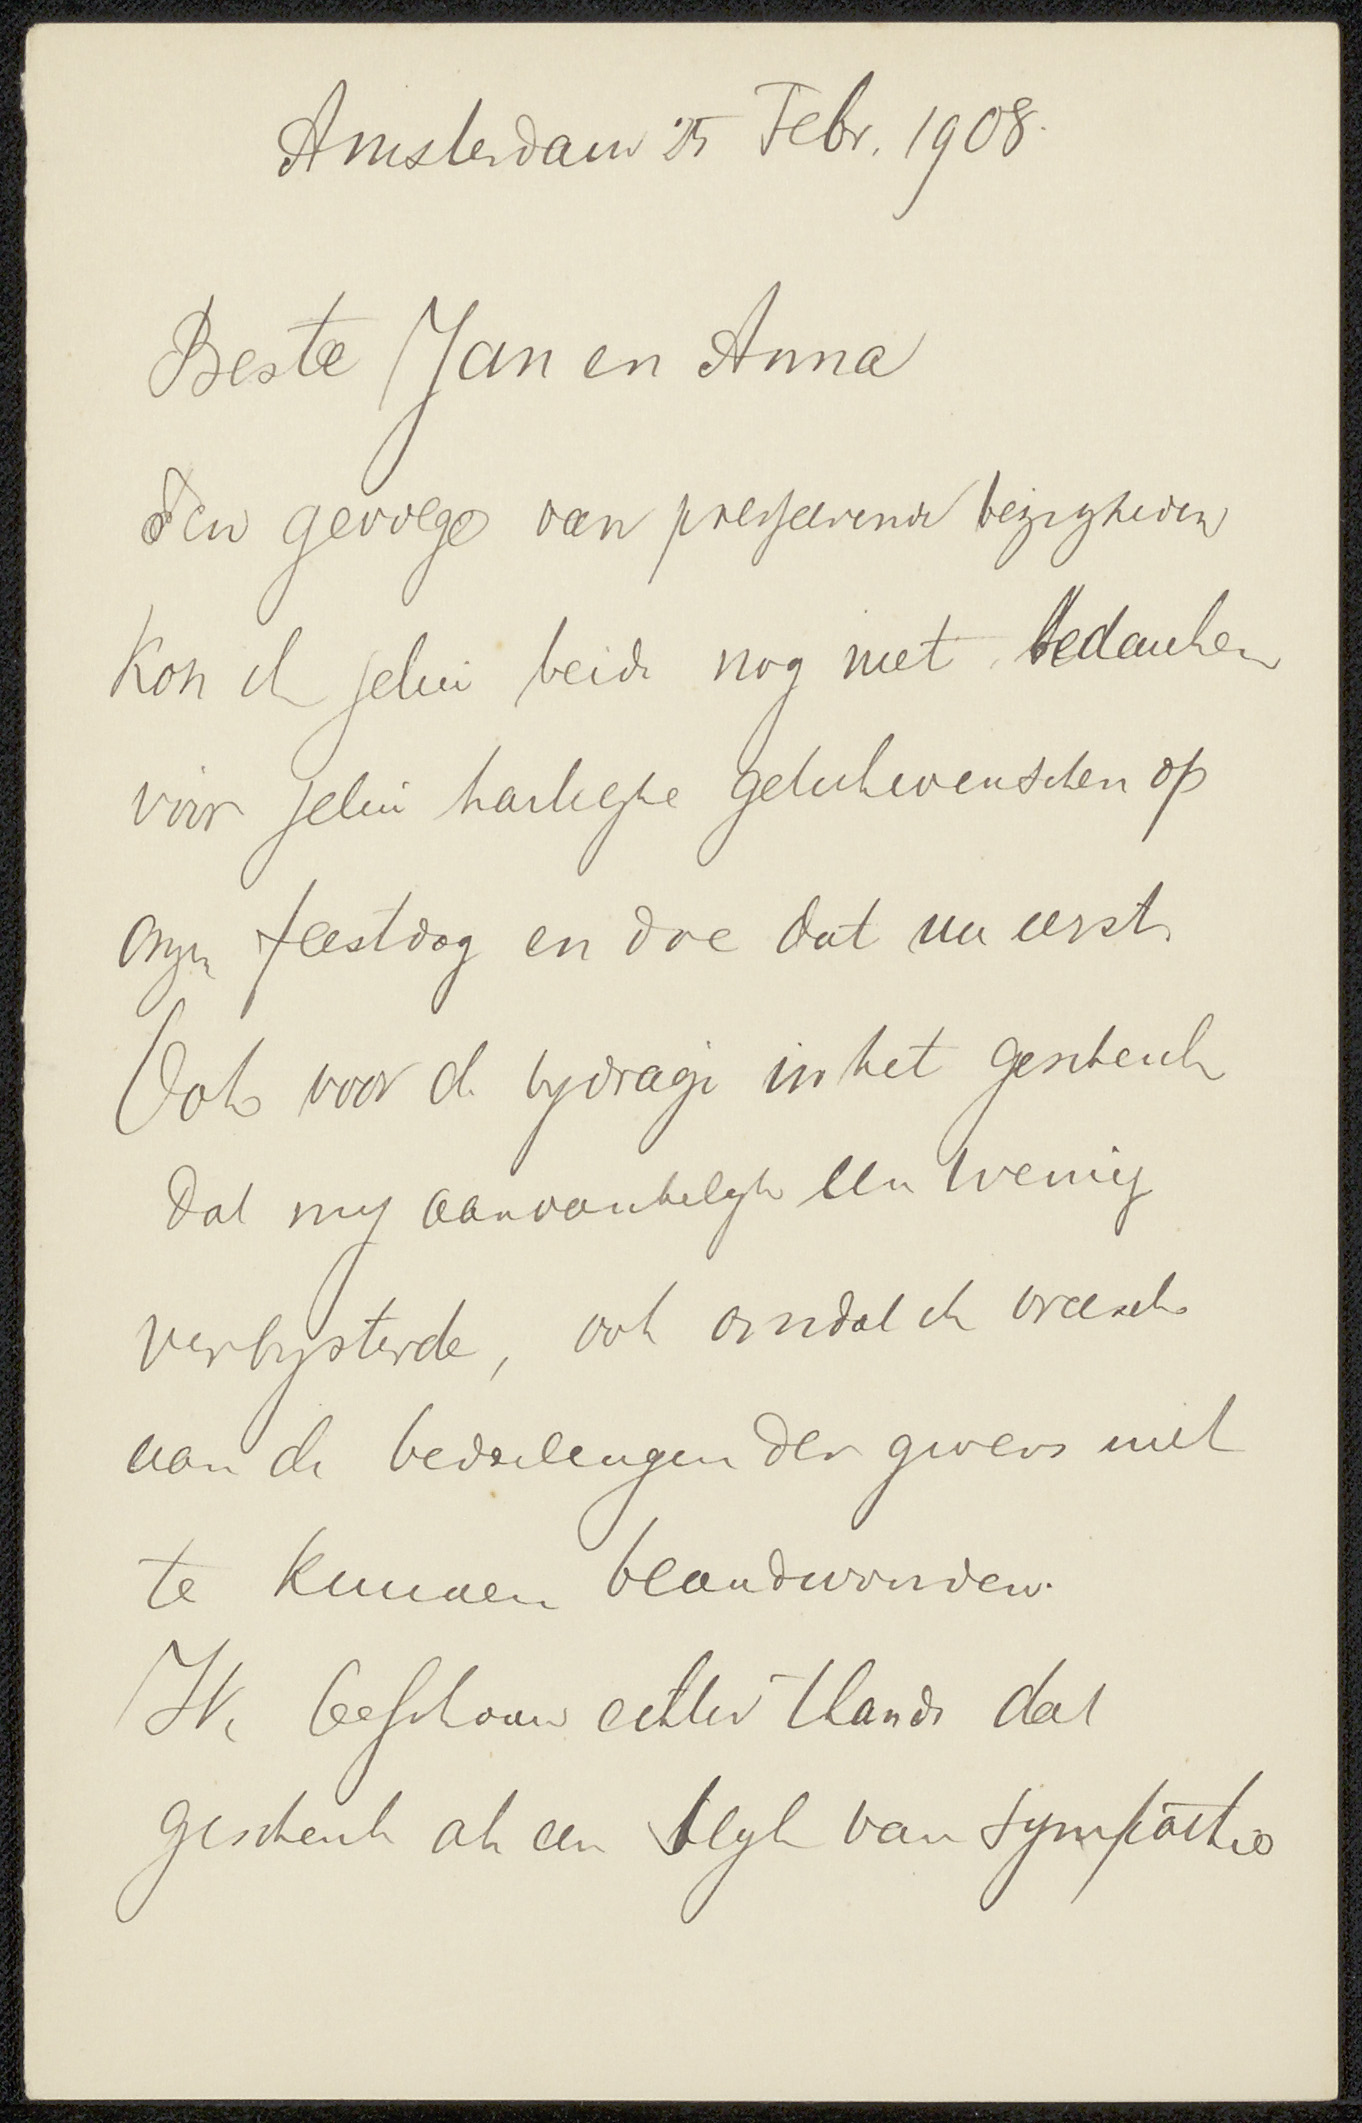 Amsterdam 25 Febr. 1908.
Beste Jan en Anna
Ten gevolge van presseerende bezigheden
kon ik jelui beide nog niet bedanken
voor jelui hartelijke gelukwenschen op
onzen feestdag en doe dat nu eerst.
Ook voor de bydrage in het geschenk
dat my aanvankelyk een weinig
verbysterde, ook omdat ik vreesde
aan de bedoelingen der gevers niet
te kunnen beandwoorden.
Ik beschouw echter thands dat
geschenk als een blyk van sympathie